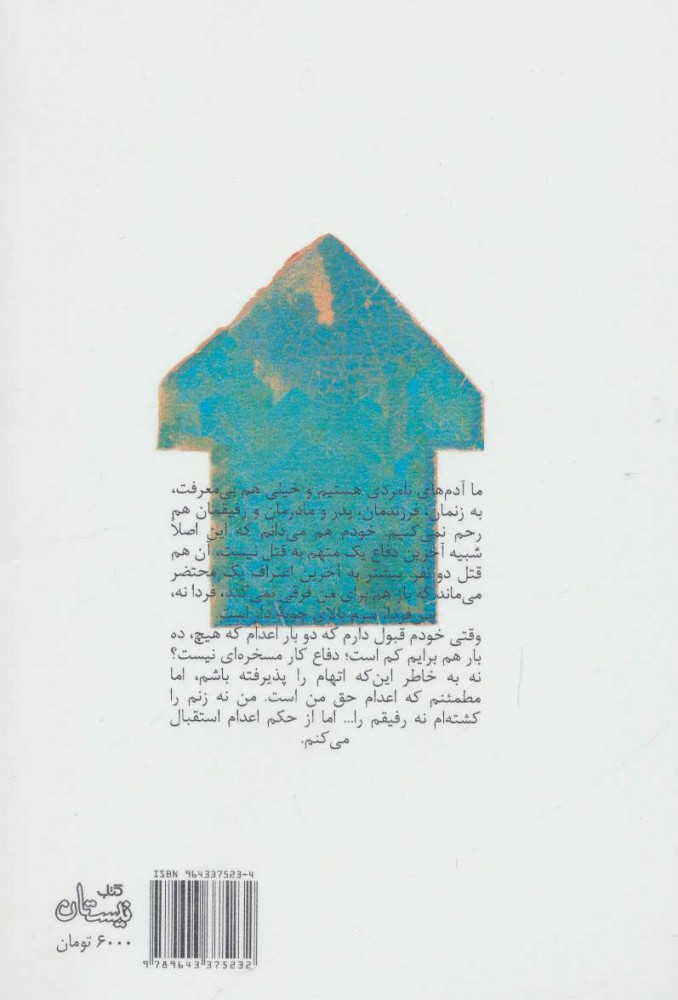 ما آدم‌های نامردی هستیم و خیلی هم بی‌معرفت،
به زنمان، فرزندمان، پدر و مادرمان و رفیقمان هم
رحم نمی‌کنیم. خودم هم می‌دانم که این اصلاً
شبیه آخرین دفاع یک متهم به قتل نیست، آن هم
قتل دو نفر. بیشتر به آخرین اعتراف یک محتضر
می‌ماند که باز هم برای من فرقی نمی‌کند، فردا نه،
پس‌فردا سرم بالای چوبه دار است.
وقتی خودم قبول دارم که دو بار اعدام که هیچ، ده
بار هم برایم کم است؛ دفاع کار مسخره‌ای نیست؟
نه به خاطر این‌که اتهام را پذیرفته باشم، اما
مطمئنم که اعدام حق من است. من نه زنم را
کشته‌ام نه رفیقم را... اما از حکم اعدام استقبال
می‌کنم.
ISBN 964337523-4
9 789643 375232
کتاب
نیستان
۶۰۰۰ تومان